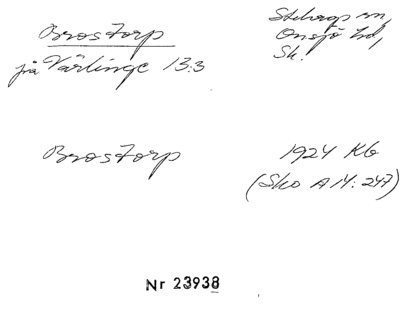 Brostorp
på Värlinge 13:3
Stehags sn,
Onsjö hd,
Sk.
Brostorp
1924 Kb
(Sko A14:247)
Nr 23938